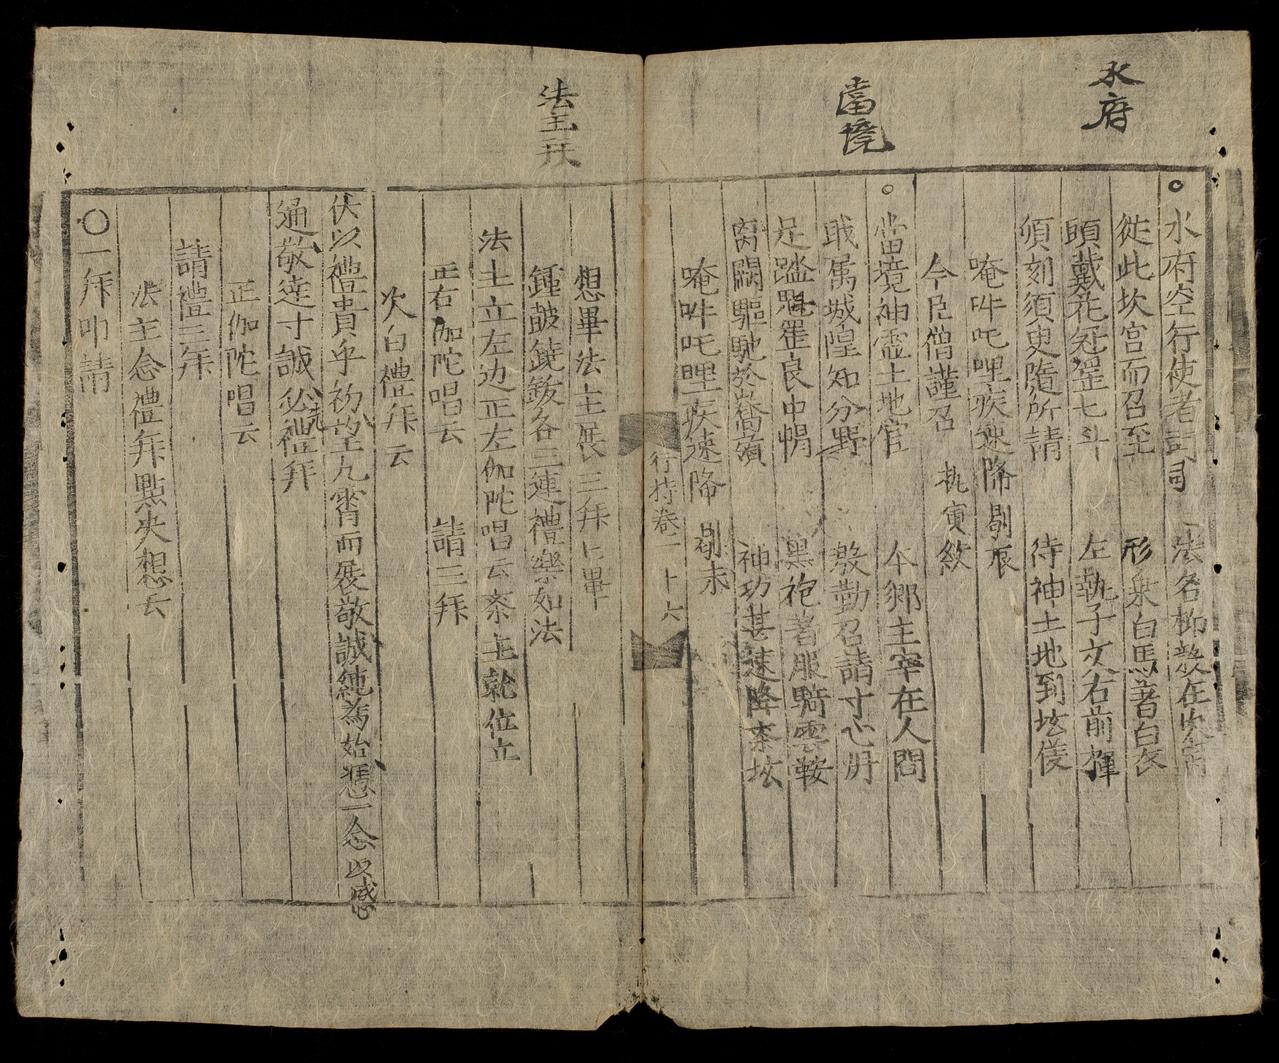 水府
當境
法主拜
○水府空行使者司 法名柳毅在坎宮
從此坎宮而召至 形乘白馬著白衣
頭戴花冠罡七斗 左執子文右前揮
頃刻須臾隨所請 待神土地到坛筵
唵吽吒哩疾速降 剔辰
今臣僧謹召 執寅敘
○當境神霊土地官 本鄉主宰在人間
戢属城隍知分野 慇勤召請寸心肝
足踏魁罡良中惧 黑袍著服騎雲鞍
离闕驅馳於峯嶺 神功甚速降斎坛
唵吽吒哩疾速降 剔未
行持卷二 十六
想畢法主展三拜匕畢
鍾皷鐃鈸各三連禮樂如法
法主立左边正左伽陀唱云斎主就位立
正右伽陀唱云 請三拜
次白禮拜云
伏以禮貴乎初望九霄而展敬誠純為始憑一念以感
通敬達寸誠必先禮拜
正伽陀唱云
請禮三拜
法主念禮拜點央想云
○一拜叩請